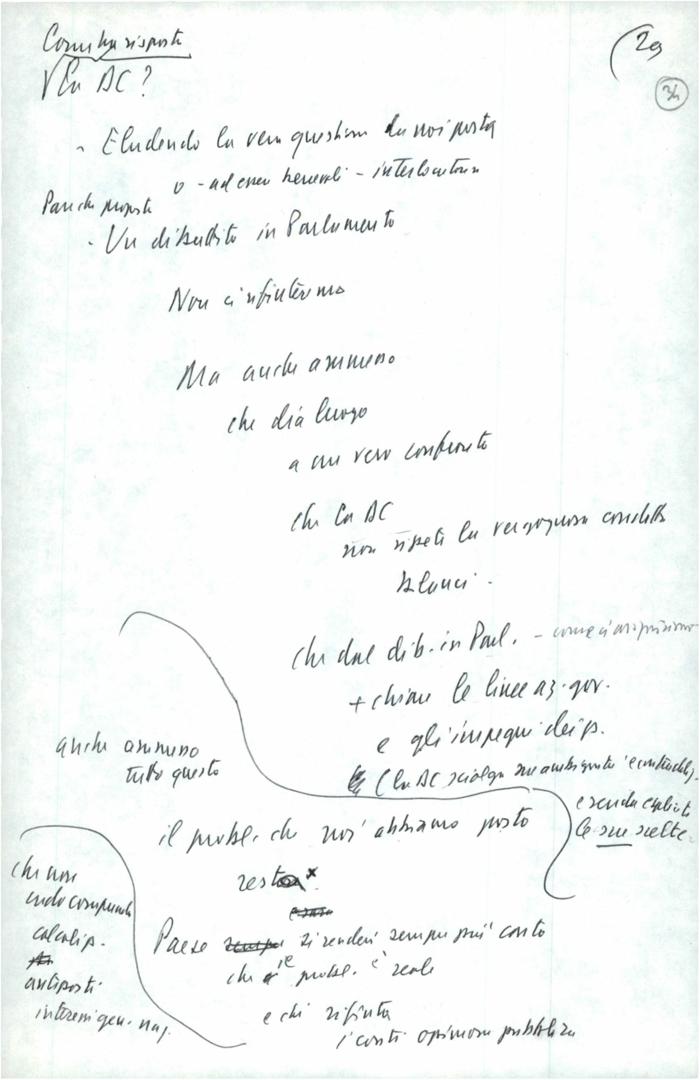 Come ha risposto
29
34
la DC?
- Eludendo la vera questione da noi posta
o - ad esser benevoli - interlocutoria
Pare che proposta
- Un dibattito in Parlamento
Non ci rifiuteremo
Ma anche ammesso
che dia luogo
a un vero confronto
che la DC
non ripeta la vergognosa condotta
che dal dib. in Parl. - come ci auspichiamo
+ chiare le linee az. gov.
e gli impegni dei p.
anche ammesso
tutto questo
(la DC sciolga sue ambiguità e contraddiz.
e renda esplicite
le sue scelte.
il probl. che noi abbiamo posto
resta x
che non
calcoli p.
anteposti
interessi gen. naz.
Paese si renderà sempre più conto
che il probl. è reale
e chi rifiuta
i conti opinione pubblica